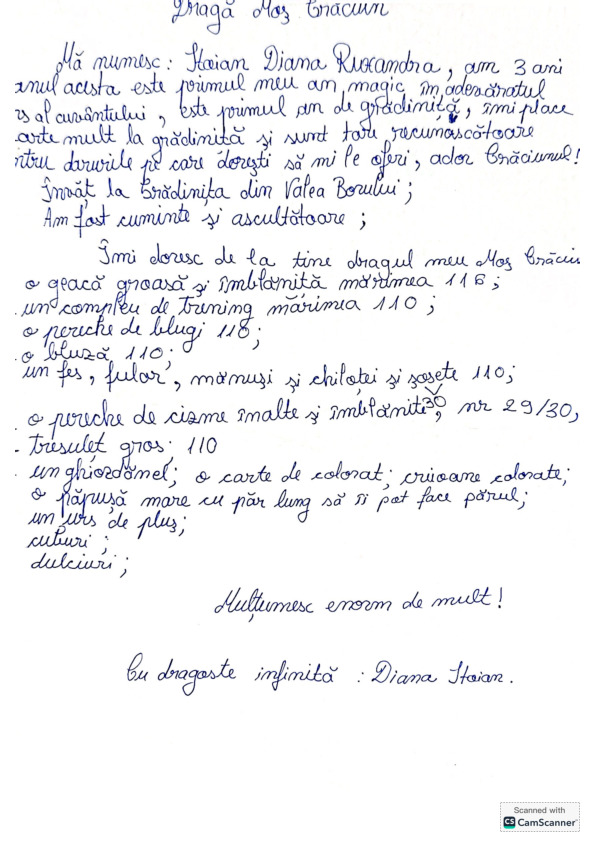 Dragă Moș Crăciun
Mă numesc: Stoian Diana Ruxandra, am 3 ani
anul acesta este primul meu an magic în adevăratul
rs al cuvântului, este primul an de grădiniță, îmi place
arte mult la grădiniță și sunt tare recunoscătoare
ntru darurile pe care dorești să mi le oferi, ador Crăciunul!
Învăț la Grădinița din Valea Borului;
Am fost cuminte și ascultătoare;
Îmi doresc de la tine dragul meu Moș Crăciu
o geacă groasă și îmblănită mărimea 116;
un compleu de trening mărimea 110;
o pereche de blugi 116;
o bluză 110;
un fes, fular, mănuși și chiloței și șosete 110;
o pereche de cizme înalte și îmblănite 30, nr 29/30,
- tresuleț gros; 110
un ghiozdănel; o carte de colorat; criioane colorate;
o păpușă mare cu păr lung să îi pot face părul;
un urs de pluș;
cuburi;
dulciuri;
Mulțumesc enorm de mult!
Cu dragoste infinită : Diana Stoian.
Scanned with
CS CamScanner